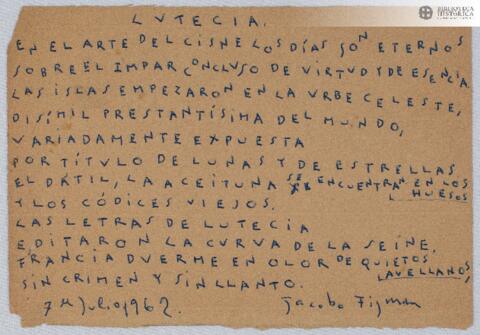 BIBLIOTECA
HISTÓRICA
LUTECIA.
EN EL ARTE DEL CISNE LOS DÍAS SON ETERNOS
SOBRE EL IMPAR CONCLUSO DE VIRTUD Y DE ESENCIA.
LAS ISLAS EMPEZARON EN LA URBE CELESTE,
DISÍMIL PRESTANTÍSIMA DEL MUNDO,
VARIADAMENTE EXPUESTA
POR TÍTULO DE LUNAS Y DE ESTRELLAS.
EL DÁTIL, LA ACEITUNA SE ENCUENTRAN EN LOS HUESOS
Y LOS CÓDICES VIEJOS.
LAS LETRAS DE LUTECIA
EDITARON LA CURVA DE LA SEINE.
FRANCIA DUERME EN OLOR DE QUIETOS AVELLANOS,
SIN CRIMEN Y SIN LLANTO.
7 Julio 1962. Jacobo Fijman